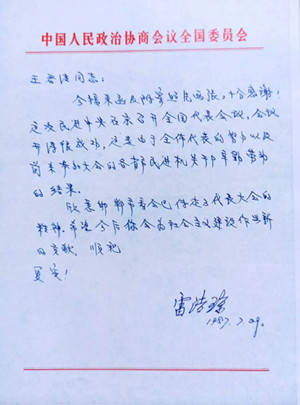 中国人民政治协商会议全国委员会
王 同志:
今接来函及附寄照片两张,十分感谢!
这次民进中央召开全国代表会议,会议
开得很成功,这是由于全体代表的努力以及
尚未参加大会的各省市民进机关干部辛勤劳动
的结果。
欣悉邯郸市委会已传达了代表大会的
精神,希望今后你会为社会主义建设作出新
的贡献。顺祝
夏安!
雷洁琼
1987.7.29.